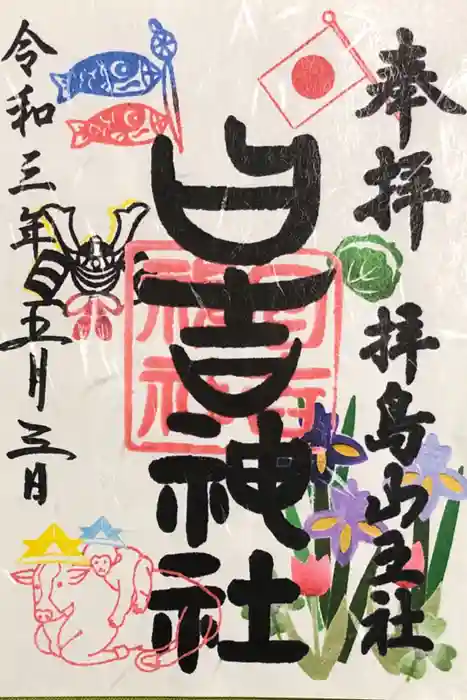 奉拝
拝島山王社
日吉神社
日吉神社
令和三年五月三日